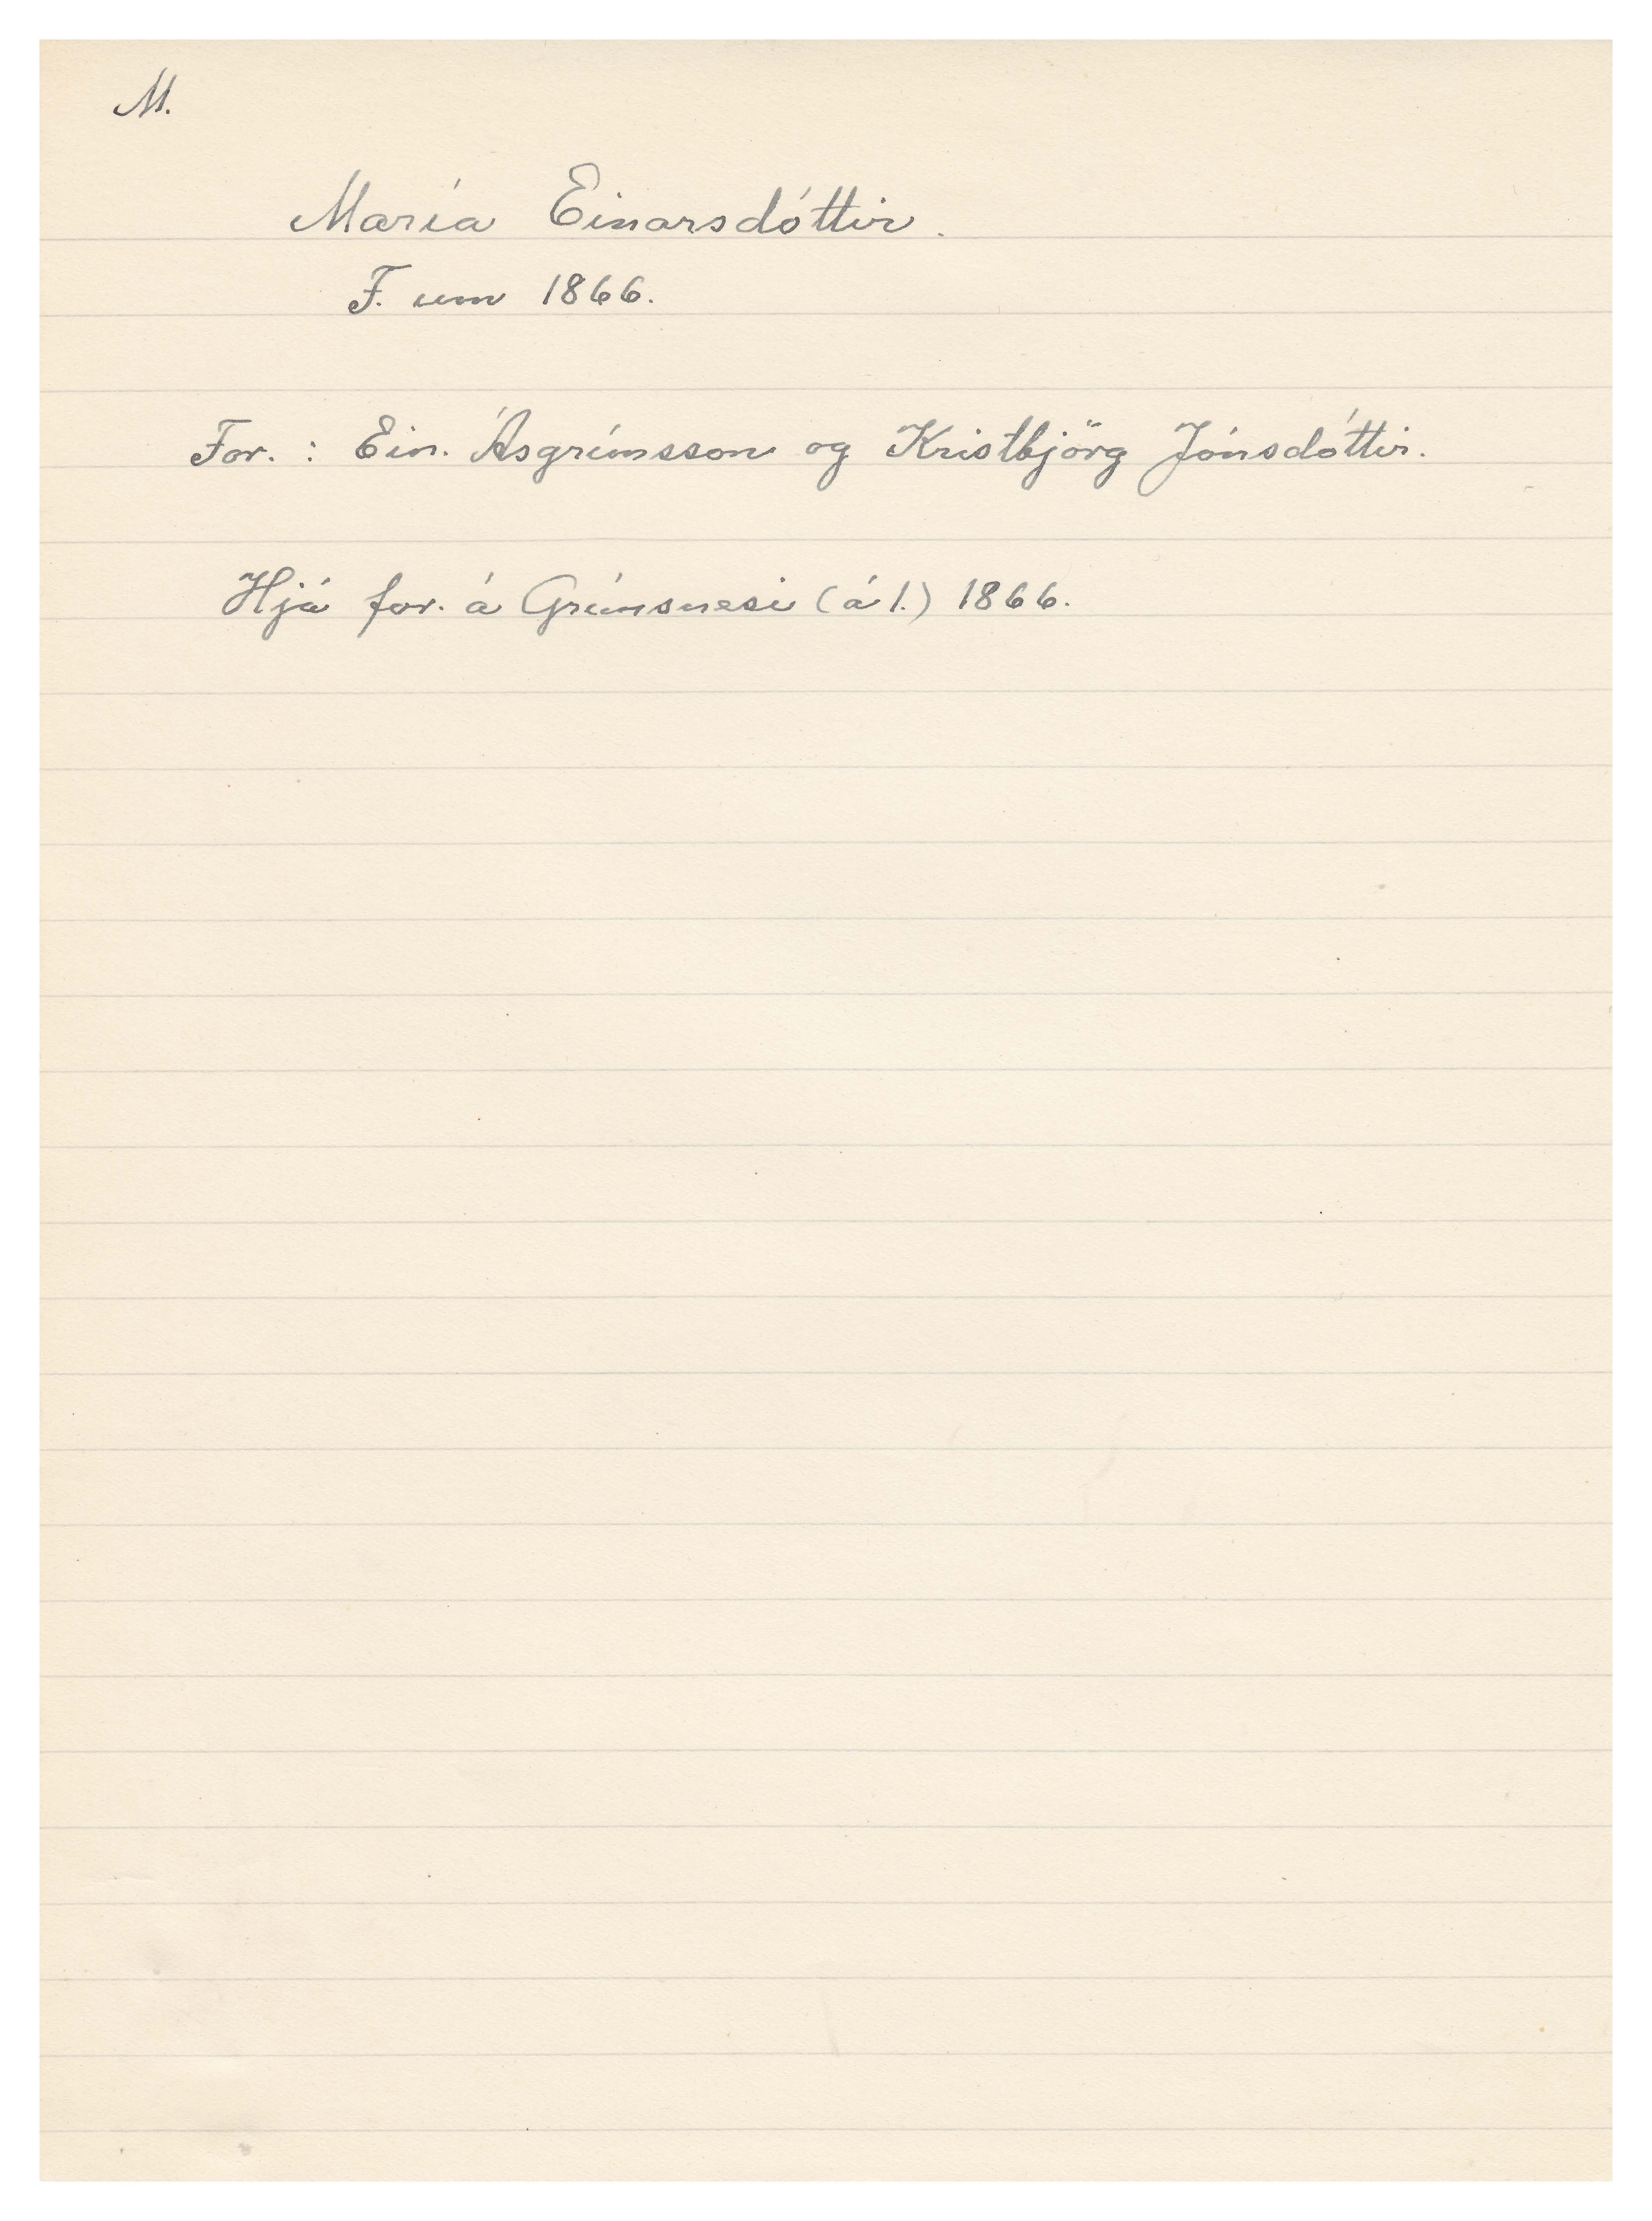 M.
María Einarsdóttir.
F. um 1866.
For. : Ein. Ásgrímsson og Kristbjörg Jónsdóttir.
Hjá for. á Grímsnesi (á 1.) 1866.